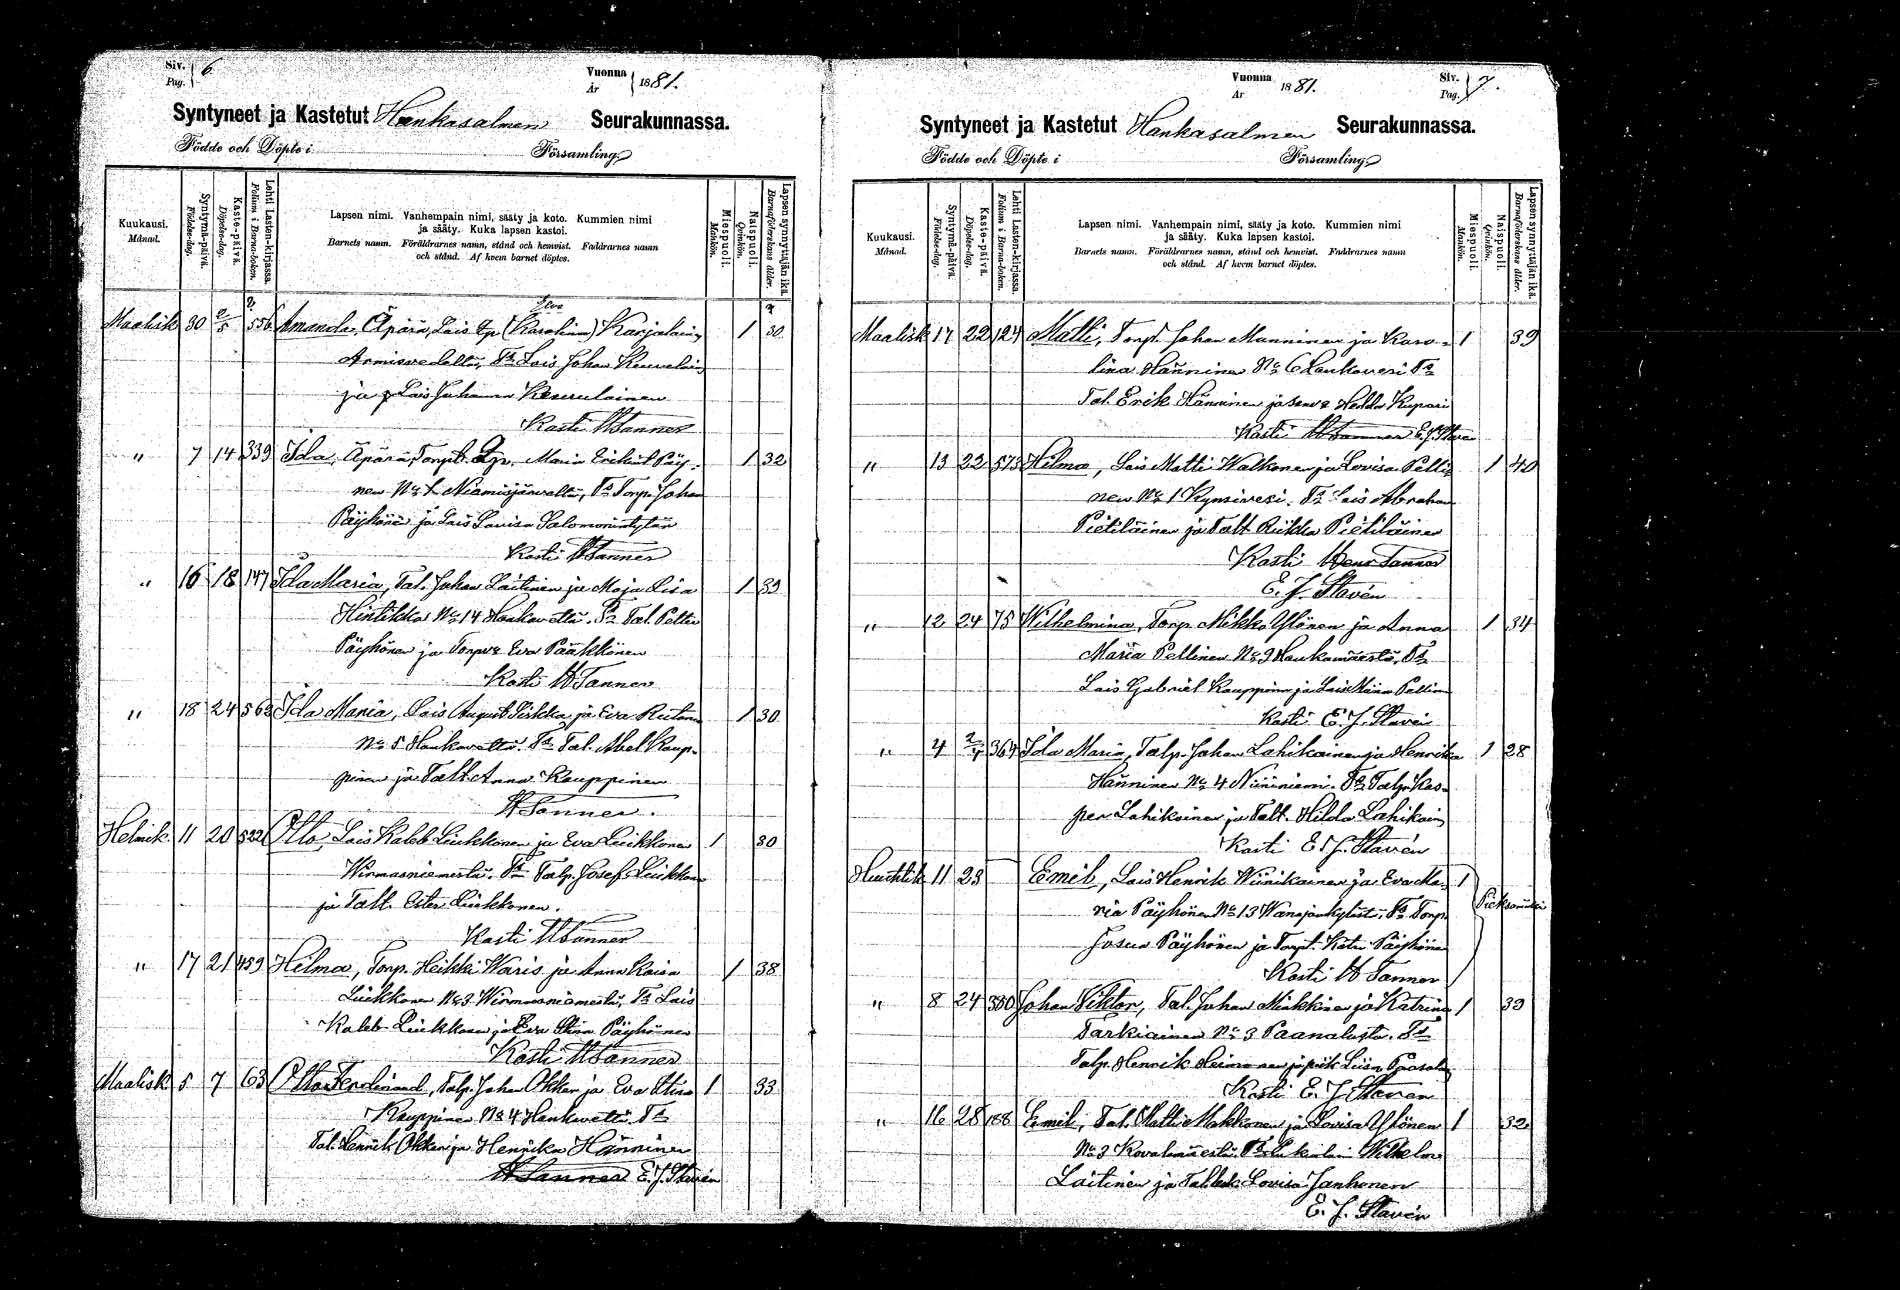 Siv.
Pag. 6.
Vuonna
År 1881.
Syntyneet ja Kastetut Hankasalmen Seurakunnassa.
Födde och Döpte i Församling
Kuukausi.
Månad.
Syntymä-päivä.
Födelse-dag.
Kaste-päivä.
Döpelse-dag.
Lehti Lasten-kirjassa.
Folium i Barna-boken.
Lapsen nimi. Vanhempain nimi, sääty ja koto. Kummien nimi
ja sääty. Kuka lapsen kastoi.
Barnets namn. Föräldrarnes namn, stånd och hemvist. Faddrarnes namn
och stånd. Af hvem barnet döptes.
Miespuoli.
Mankön.
Naispuoli.
Qvinkön.
Lapsen synnyttäjän ikä.
Barnaföderskans ålder.
Maalisk 30 2/5 556 Amanda, Äpärä, Lais typ (Karolina) Karjalain 1 30
Armisvedeltä, Ts Lais Johan Keurulain
ja Lais Johanna Keurulainen
Kasti W Tanner
" 7 14 339 Ida, Äpärä, Maria Päy- 1 32
nen No Niemisjärveltä, Ts Torp. Johan
Päyhönen ja Lais Lovisa Salomonintytär
Kasti W Tanner
" 16 18 147 Ida Maria, Tal. Johan Laitinen ja Maja Lisa 1 39
Hintikka No 14 Hankavettä, Ts Tal. Petter
Päyhönen ja Eva Pääkkönen
Kasti W Tanner
" 18 24 562 Ida Maria, Lais August Sirkka ja Eva 1 30
No 5 Hankavettä. Ts Tal. Abel Kaup-
pinen ja Talt. Anna Kauppinen
W Tanner.
Helmik. 11 20 522 Otto, Lais Kaleb Liukkonen ja Eva Liukkonen 1 30
Wirmasniemestä. Ts Talp. Josef Liukkon
ja Talt. Ester Liukkonen.
Kasti W Tanner
" 17 21 459 Hilma, Torp. Heikki Waris ja Anna Kaisa 1 38
Liukkonen No 3 Wirmasniemestä, Ts Lais
Kaleb Liukkonen ja Eva Stina Päyhönen
Kasti W Tanner
Maalisk 5 7 63 Otto Ferdinand, Talp. Johan Okker ja Eva Stina 1 33
Kauppinen No 4 Hankavettä Ts
Tal. Henrik Okker ja Henrika Hänninen
W Tanner E. J. Stavén
Siv.
Pag. 7.
Vuonna
År 1881.
Syntyneet ja Kastetut Hankasalmen Seurakunnassa.
Födde och Döpte i Församling
Kuukausi.
Månad.
Syntymä-päivä.
Födelse-dag.
Kaste-päivä.
Döpelse-dag.
Lehti Lasten-kirjassa.
Folium i Barna-boken.
Lapsen nimi. Vanhempain nimi, sääty ja koto. Kummien nimi
ja sääty. Kuka lapsen kastoi.
Barnets namn. Föräldrarnes namn, stånd och hemvist. Faddrarnes namn
och stånd. Af hvem barnet döptes.
Miespuoli.
Mankön.
Naispuoli.
Qvinkön.
Lapsen synnyttäjän ikä.
Barnaföderskans ålder.
Maalisk 17 22 124 Matti, Torp. Johan Manninen ja Karo- 1 39
lina Hänninen No 6 Ts
Tal. Erik Hänninen ja Hedda Kupari
Kasti W Tanner E. J. Stavén
" 13 22 573 Hilma, Lais Matti Walkonen ja Lovisa Pelli- 1 40
nen No 1 Kynsivesi. Ts Lais Abraham
Pietiläinen ja Talt Riikka Pietiläinen
Kasti Tanner
E. J. Stavén
" 12 24 75 Wilhelmina, Torp. Mikko Ylönen ja Anna 1 34
Maria Pellinen No 9 Haukamäestä, Ts
Lais Gabriel Kauppinen ja Lais Miina Pellin
Kasti E. J. Stavén
" 4 2/4 364 Ida Maria, Talp. Johan Lahikainen ja Henrika 1 28
Hänninen No 4 Niiniemi. Ts Talp. Kas-
per Lahikainen ja Talt. Hilda Lahikain
Kasti E. J. Stavén
Huhtik 11 23 Emil, Lais Henrik Wiinikainen ja Eva Ma- 1
ria Päyhönen No 13 Ts Torp.
Josua Päyhönen ja Torpt. Päyhönen
Kasti W Tanner
Pieksämäki
" 8 24 350 Johan Viktor, Tal. Johan Minkkinen ja Katrina 1 39
Tarkiainen No 3 Paanalasta. Ts
Talp. Henrik ja Liisa
Kasti E. J. Stavén
" 16 28 188 Emil, Tal. Matti Makkonen ja Lovisa Ylönen 1 32
No 3 Kovalamäestä. Ts Wilhelm
Laitinen ja Lovisa Janhonen
E. J. Stavén